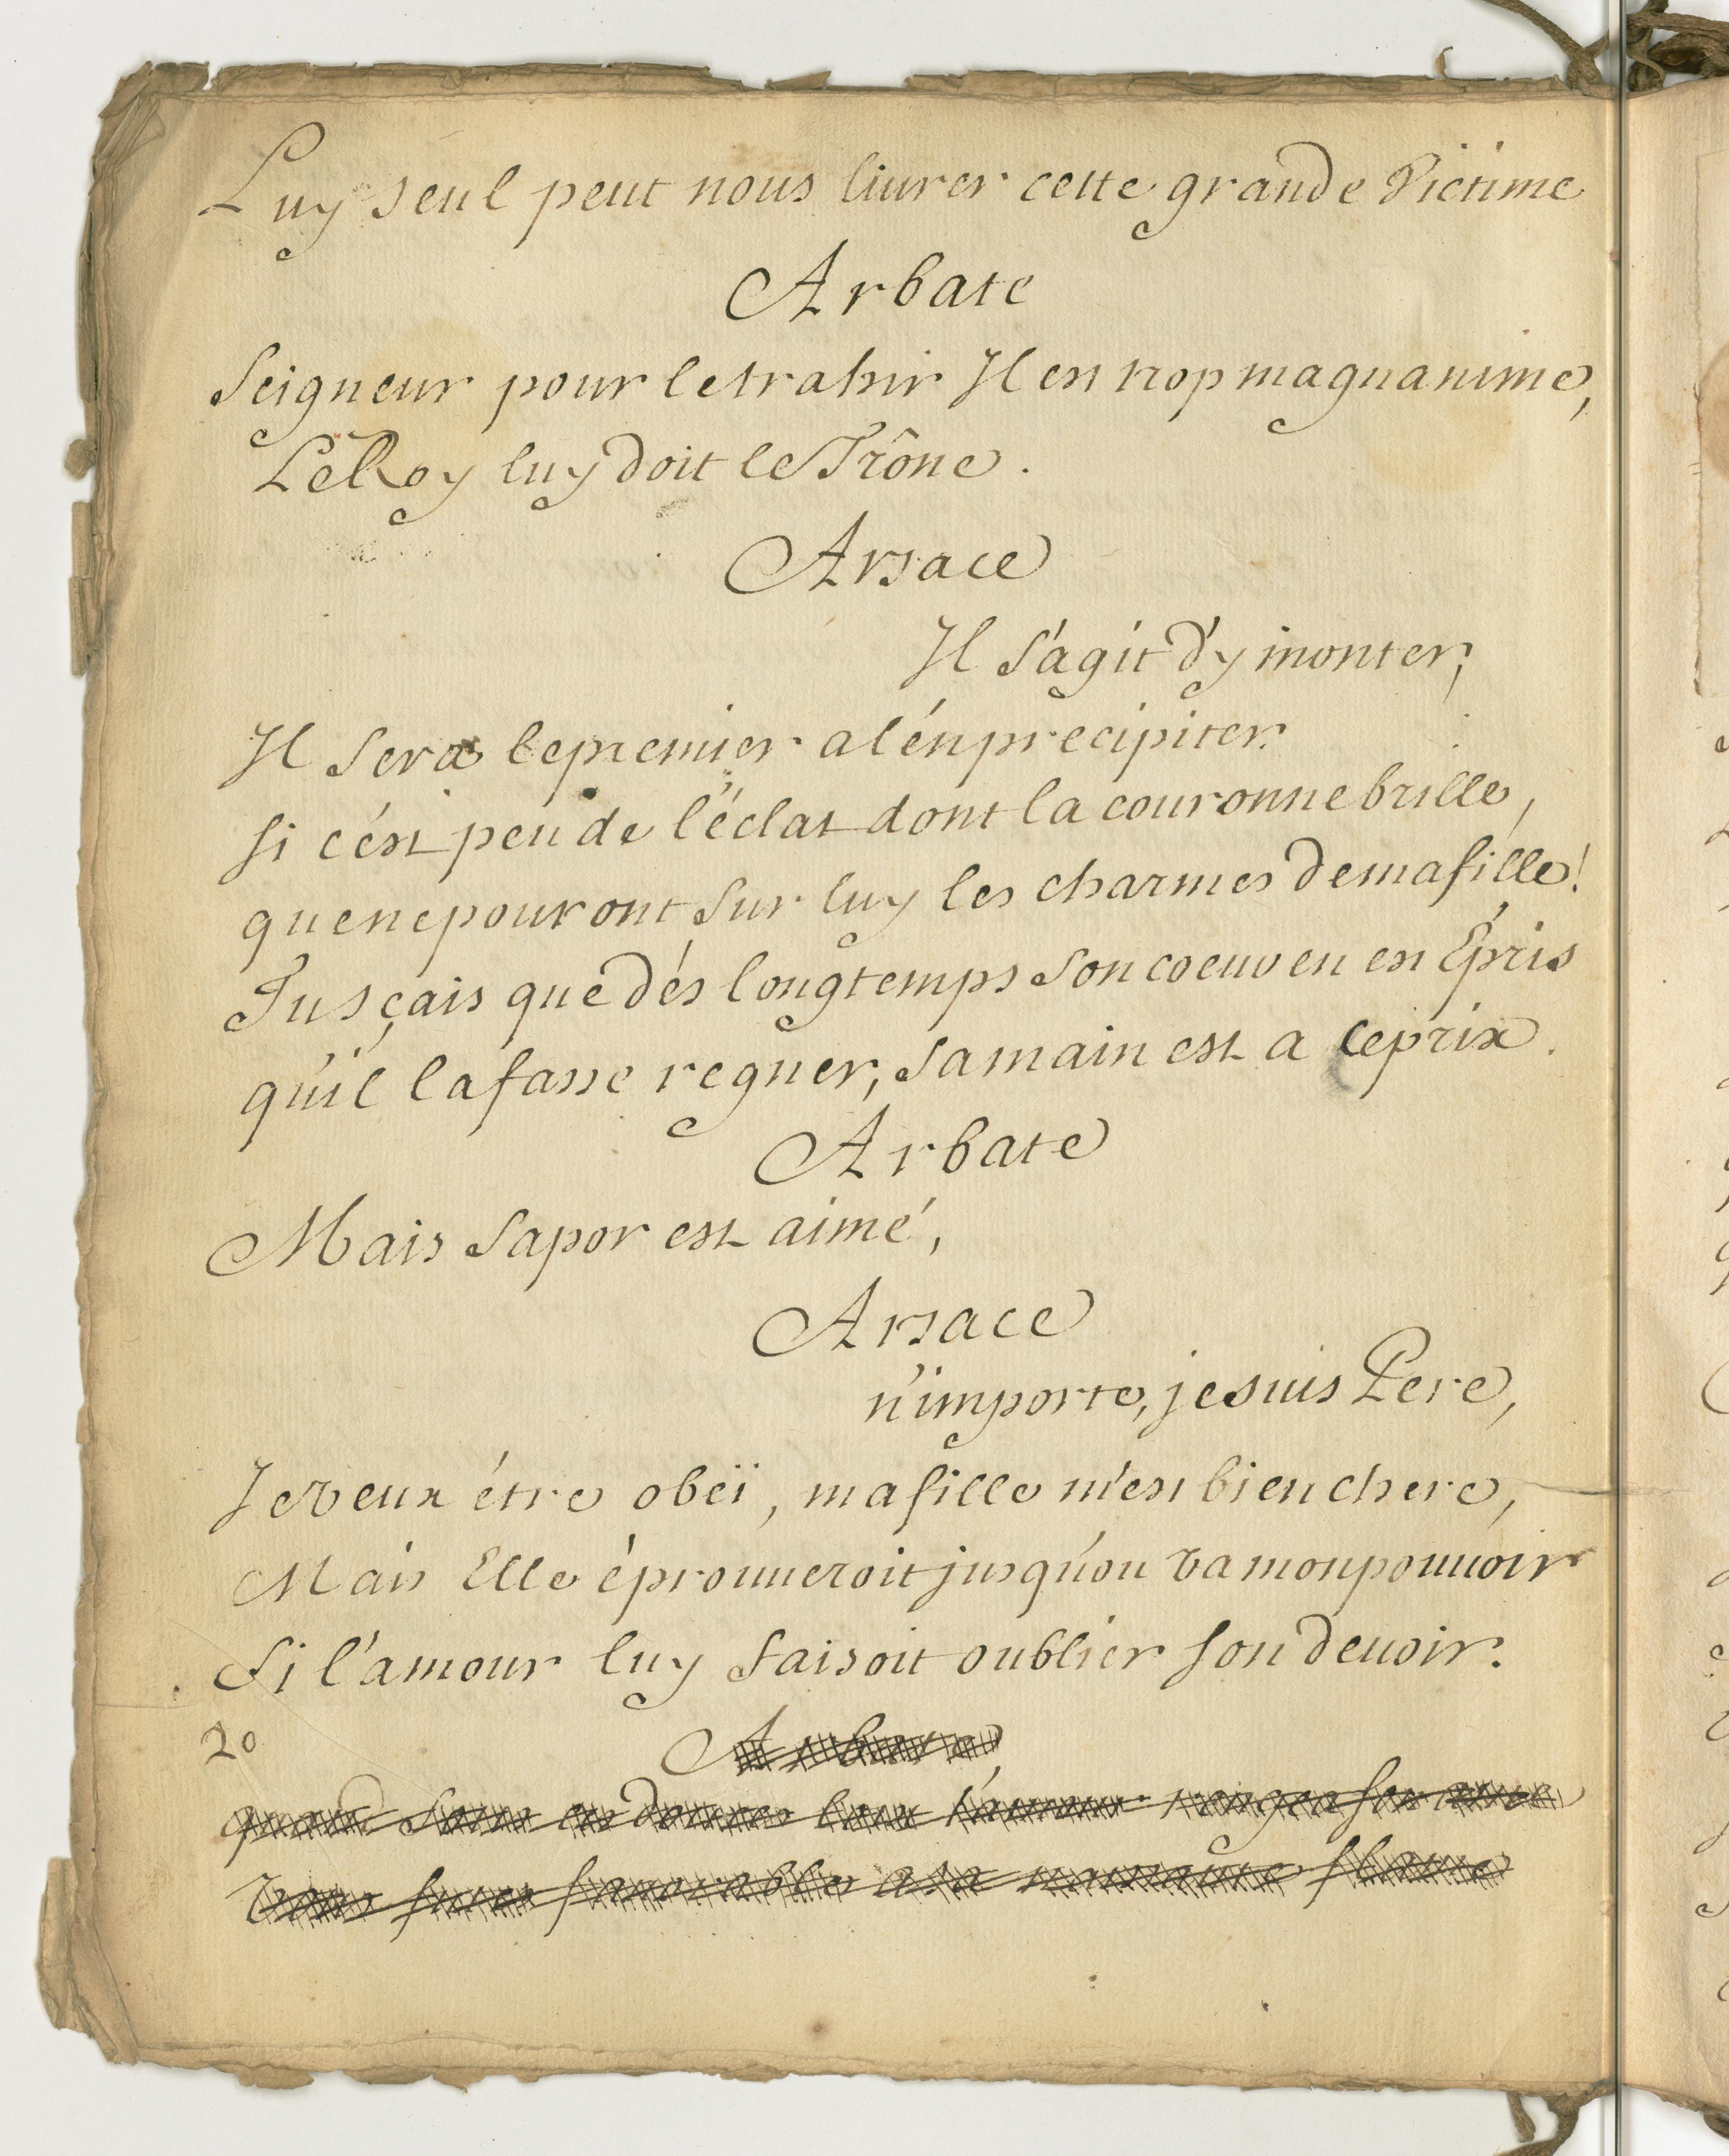 Luy seul peut nous liurer cette grande Victime
Arbate
Seigneur pour le trahir Il est trop magnanime,
Le Roy luy doit le Trône.
Arsace
Il s'agit d'y monter;
Il sera le premier a l'én precipiter.
Si c'ést peu de l'éclat dont la couronne brille,
que ne pouront sur luy les charmes de ma fille!
Tu sçais que dés longtemps son coeur en est Épris
qu'il la fasse regner, sa main est a ce prix.
Arbate
Mais Sapor est aimé,
Arsace
n'importe, je suis Pere,
Je veux étre obëi, ma fille m'est bien chere,
Mais Elle éprouueroit jusqu'ou va mon pouuoir
Si l'amour luy faisoit oublier son deuoir.
20
Arbate
favorable a sa flame